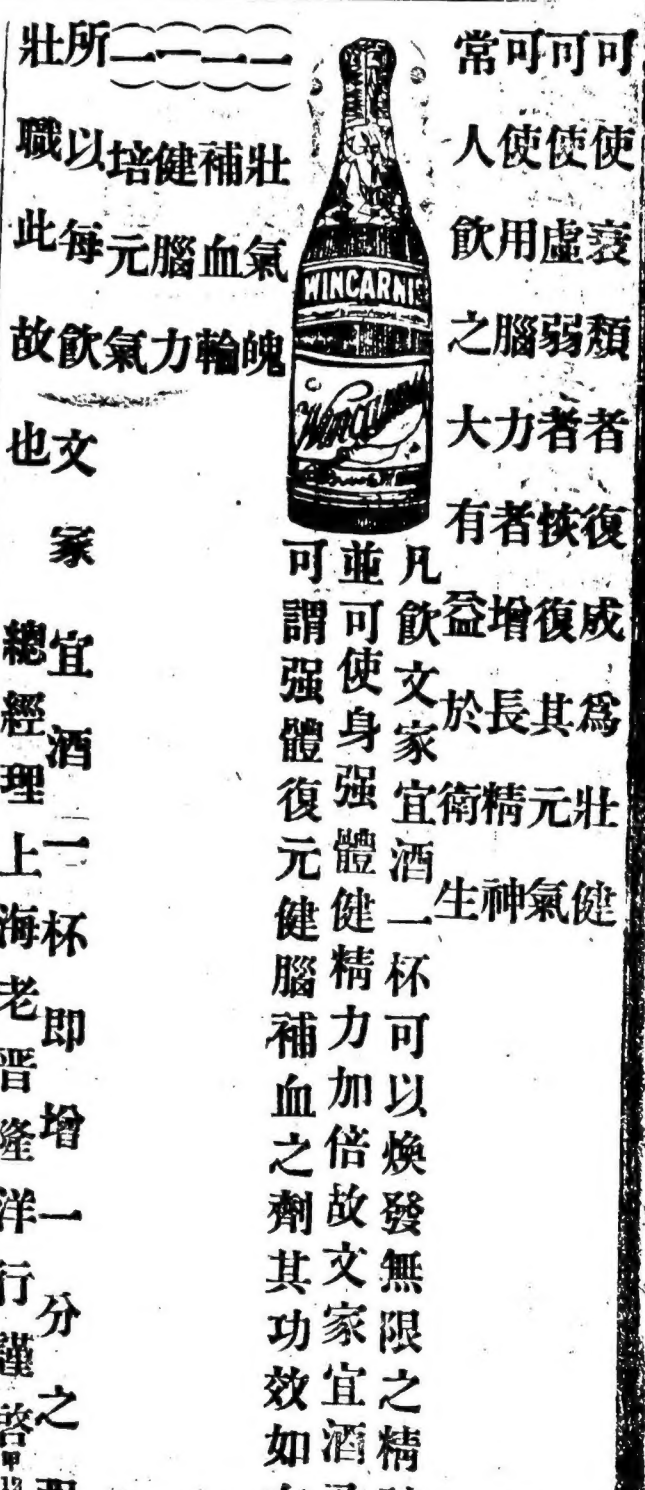 可使衰頽者復成爲壯健
可使虛弱者恢復其元氣
可使用腦力者增長精神
常人飲之大有益於衛生
WINCARNIS
Wincarnis
凡飲文家宜酒一杯可以煥發無限之精
並可使身强體健精力加倍故文家宜酒
可謂强體復元健腦補血之劑其功效如
(一)壯氣魄
(一)補血輪
(一)健腦力
(一)培元氣
所以每飲文家宜酒一杯即增一分之
壯職此故也
總經理上海老晋隆洋行謹啓
甲